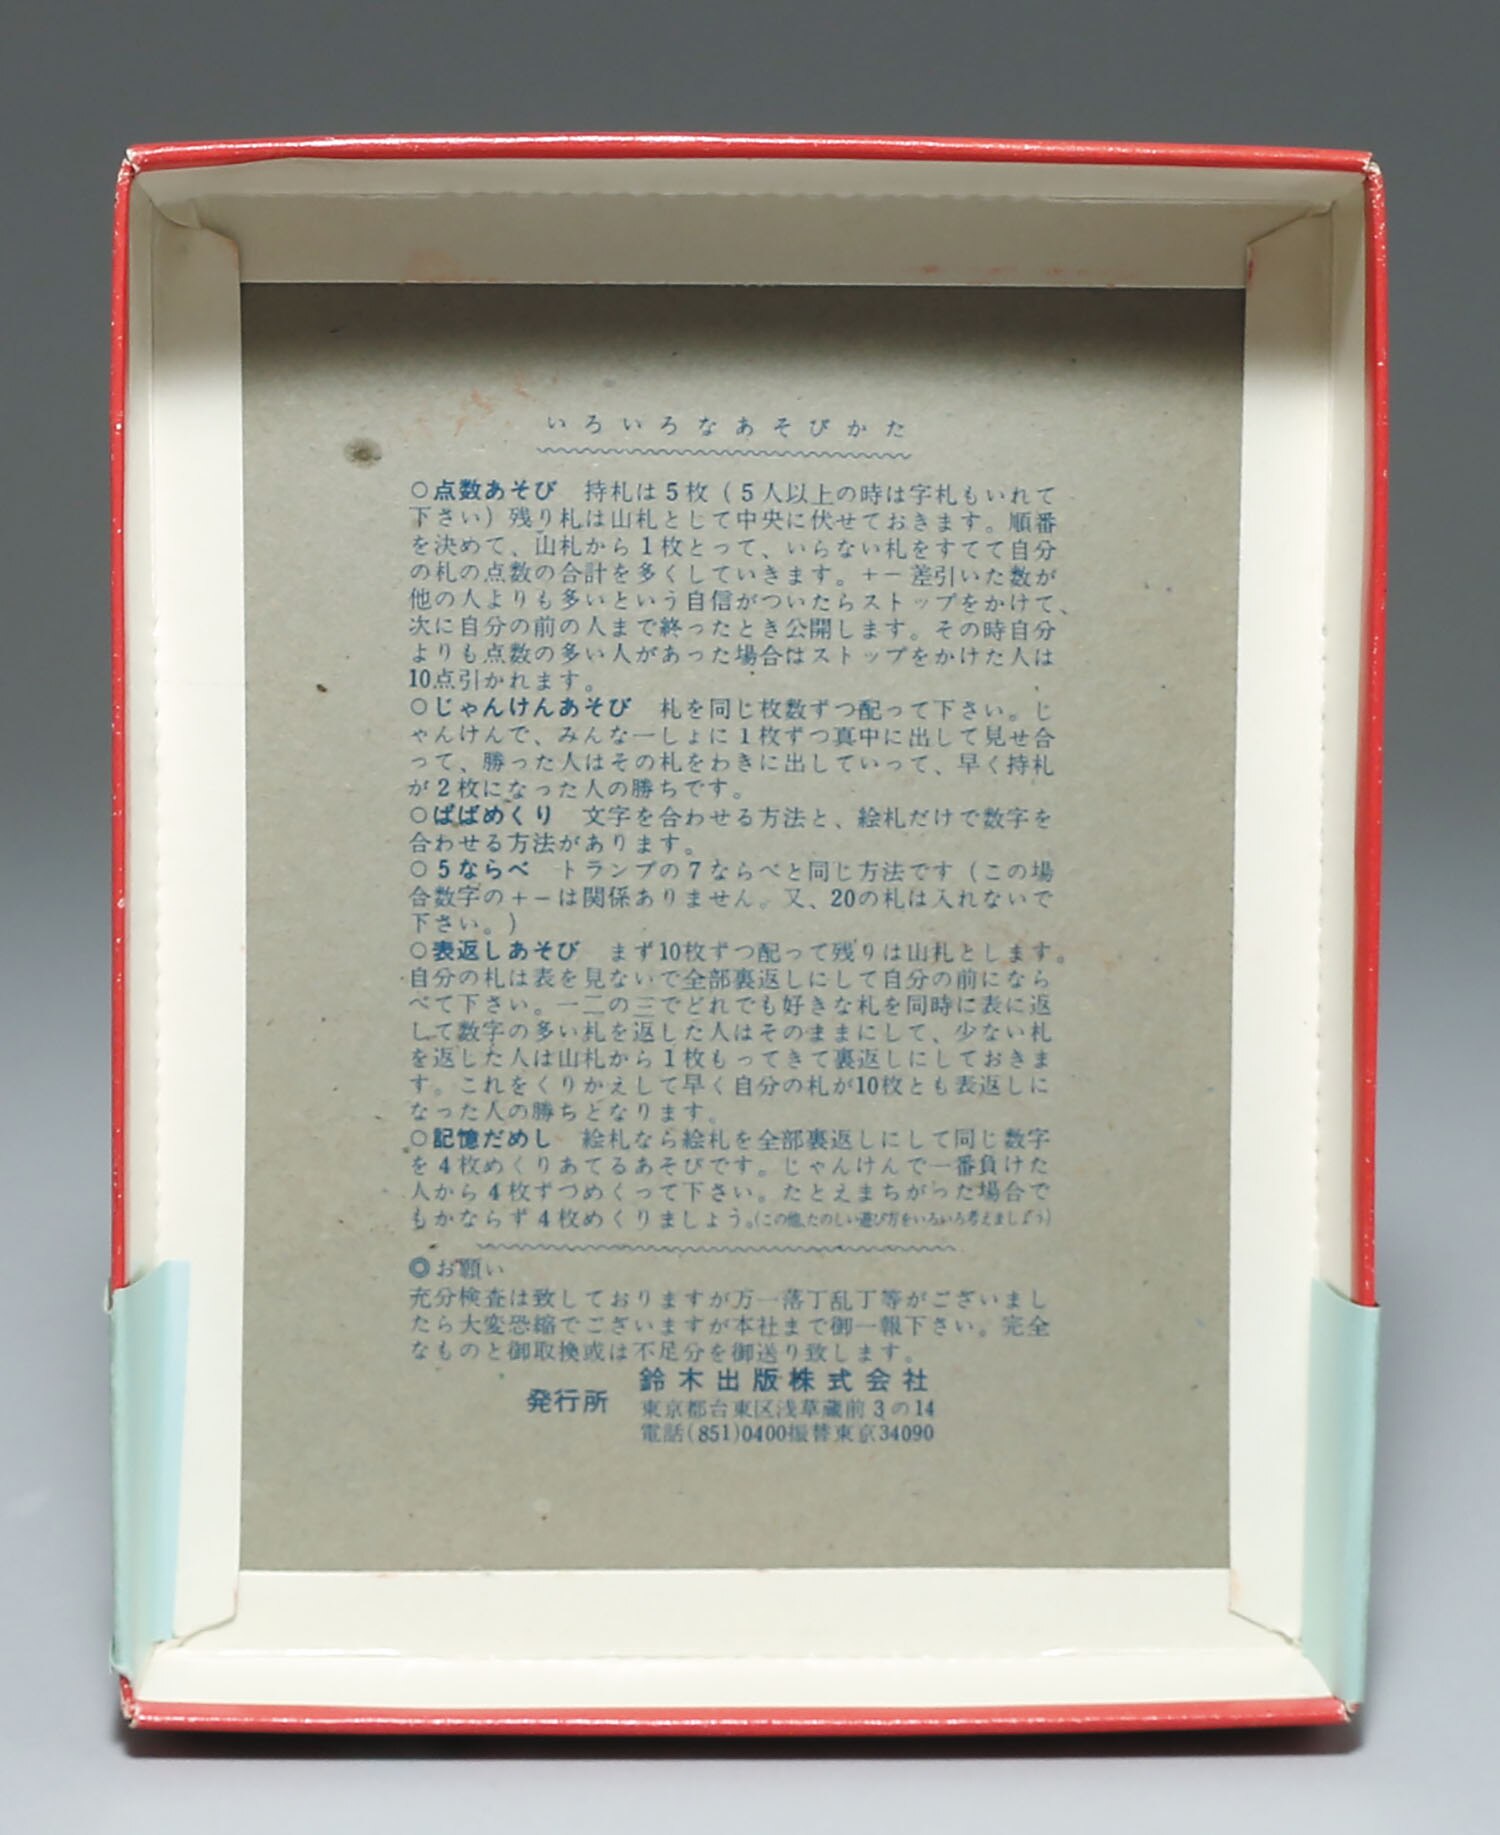 いろいろなあそびかた
○点数あそび 持札は5枚(5人以上の時は字札もいれて
下さい)残り札は山札として中央に伏せておきます。順番
を決めて、山札から1枚とって、いらない札をすてて自分
の札の点数の合計を多くしていきます。+−差引いた数が
他の人よりも多いという自信がついたらストップをかけて、
次に自分の前の人まで終ったとき公開します。その時自分
よりも点数の多い人があった場合はストップをかけた人は
10点引かれます。
○じゃんけんあそび 札を同じ枚数ずつ配って下さい。じ
ゃんけんで、みんな一しょに1枚ずつ真中に出して見せ合
って、勝った人はその札をわきに出していって、早く持札
が2枚になった人の勝ちです。
○ばばめくり 文字を合わせる方法と、絵札だけで数字を
合わせる方法があります。
○5ならべ トランプの7ならべと同じ方法です(この場
合数字の+−は関係ありません。又、20の札は入れないで
下さい。)
○表返しあそび まず10枚ずつ配って残りは山札とします。
自分の札は表を見ないで全部裏返しにして自分の前になら
べて下さい。一二の三でどれでも好きな札を同時に表に返
して数字の多い札を返した人はそのままにして、少ない札
を返した人は山札から1枚もってきて裏返しにしておきま
す。これをくりかえして早く自分の札が10枚とも表返しに
なった人の勝ちとなります。
○記憶だめし 絵札なら絵札を全部裏返しにして同じ数字
を4枚めくりあてるあそびです。じゃんけんで一番負けた
人から4枚ずつめくって下さい。たとえまちがった場合で
もかならず4枚めくりましょう。(この他、たのしい遊び方をいろいろ考えましょう)
◎お願い
充分検査は致しておりますが万一落丁乱丁等がございまし
たら大変恐縮でございますが本社まで御一報下さい。完全
なものと御取換或は不足分を御送り致します。
発行所 鈴木出版株式会社
東京都台東区浅草蔵前3の14
電話(851)0400振替東京34090